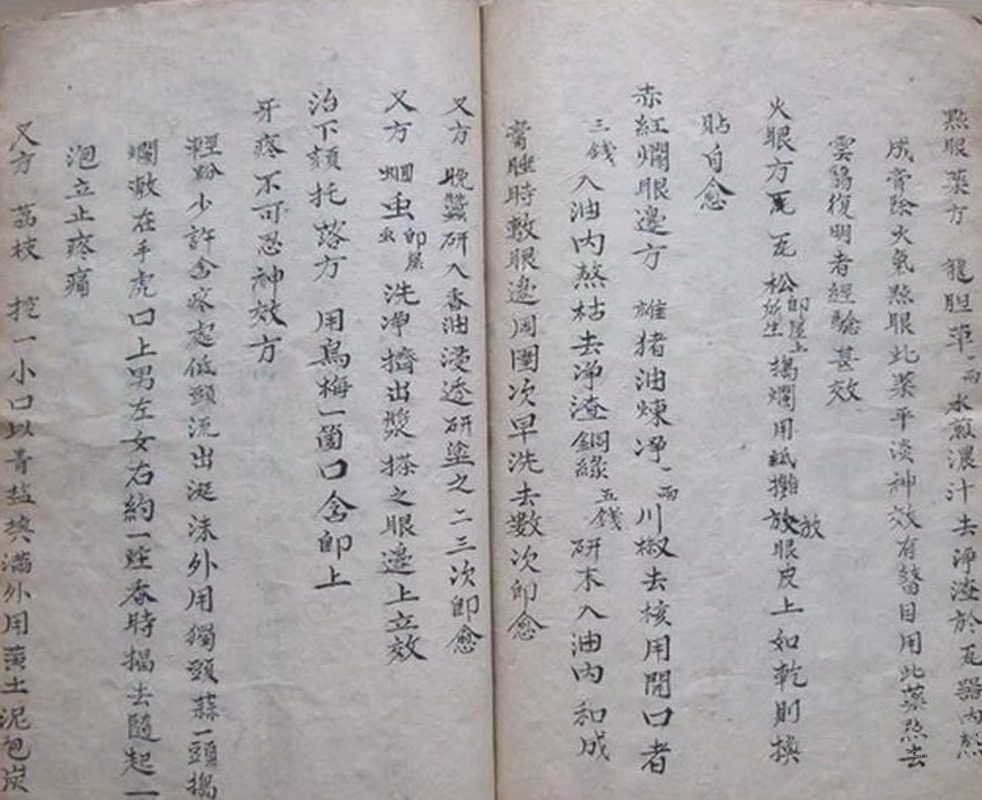 點眼藥方 龍胆草一兩水煎濃汁去淨渣於瓦器內熬
成膏除火氣點眼此藥平淡神效有瞽目用此藥點去
雲翳復明者經驗甚效
火眼方 瓦松即屋上所生搗爛用紙攤放眼皮上如乾則換
放
貼自愈
赤紅爛眼邊方 雄猪油煉淨一兩川椒去核用開口者
三錢入油內熬枯去淨渣銅綠五錢研末入油內和成
膏睡時敷眼邊周圍次早洗去數次即愈
又方 晚蠶研入香油浸透研塗之二三次即愈
又方 蟈虫即屎虫洗淨擠出漿搽之眼邊上立效
治下頦托落方 用烏梅一箇口含即上
牙疼不可忍神效方
輕粉少許含疼處低頭流出涎沫外用獨頭蒜一頭搗
爛敷在手虎口上男左女右約一炷香時揭去隨起一
泡立止疼痛
又方 荔枝 挖一小口以青塩填滿外用黃土泥包炭